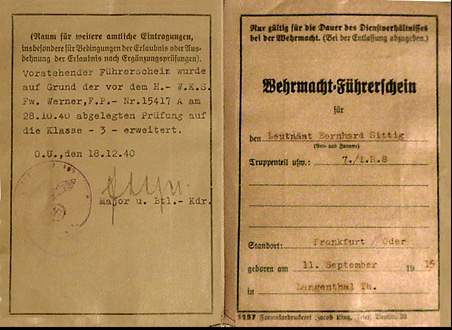 (Raum für weitere amtliche Eintragungen,
insbesondere für Bedingungen der Erlaubnis oder Aus-
dehnung der Erlaubnis nach Ergänzungsprüfungen).
Vorstehender Führerschein wurde
auf Grund der vor dem H.- W.K.S.
Fw. Werner,F.P.- Nr.15417 A am
28.10.40 abgelegten Prüfung auf
die Klasse - 3 - erweitert.
O.U.,den 18.12.40
Major u. Btl.- Kdr.
Nur gültig für die Dauer des Dienstverhältnisses
bei der Wehrmacht. (Bei der Entlassung abzugeben.)
Wehrmacht-Führerschein
für
den Leutnant Bernhard Sittig
(Vor- und Zuname)
Truppenteil usw.: 7./I.R.8
Standort: Frankfurt / Oder
geboren am 11. September 1915
in Langenthal Th.
Formulardruckerei Jacob